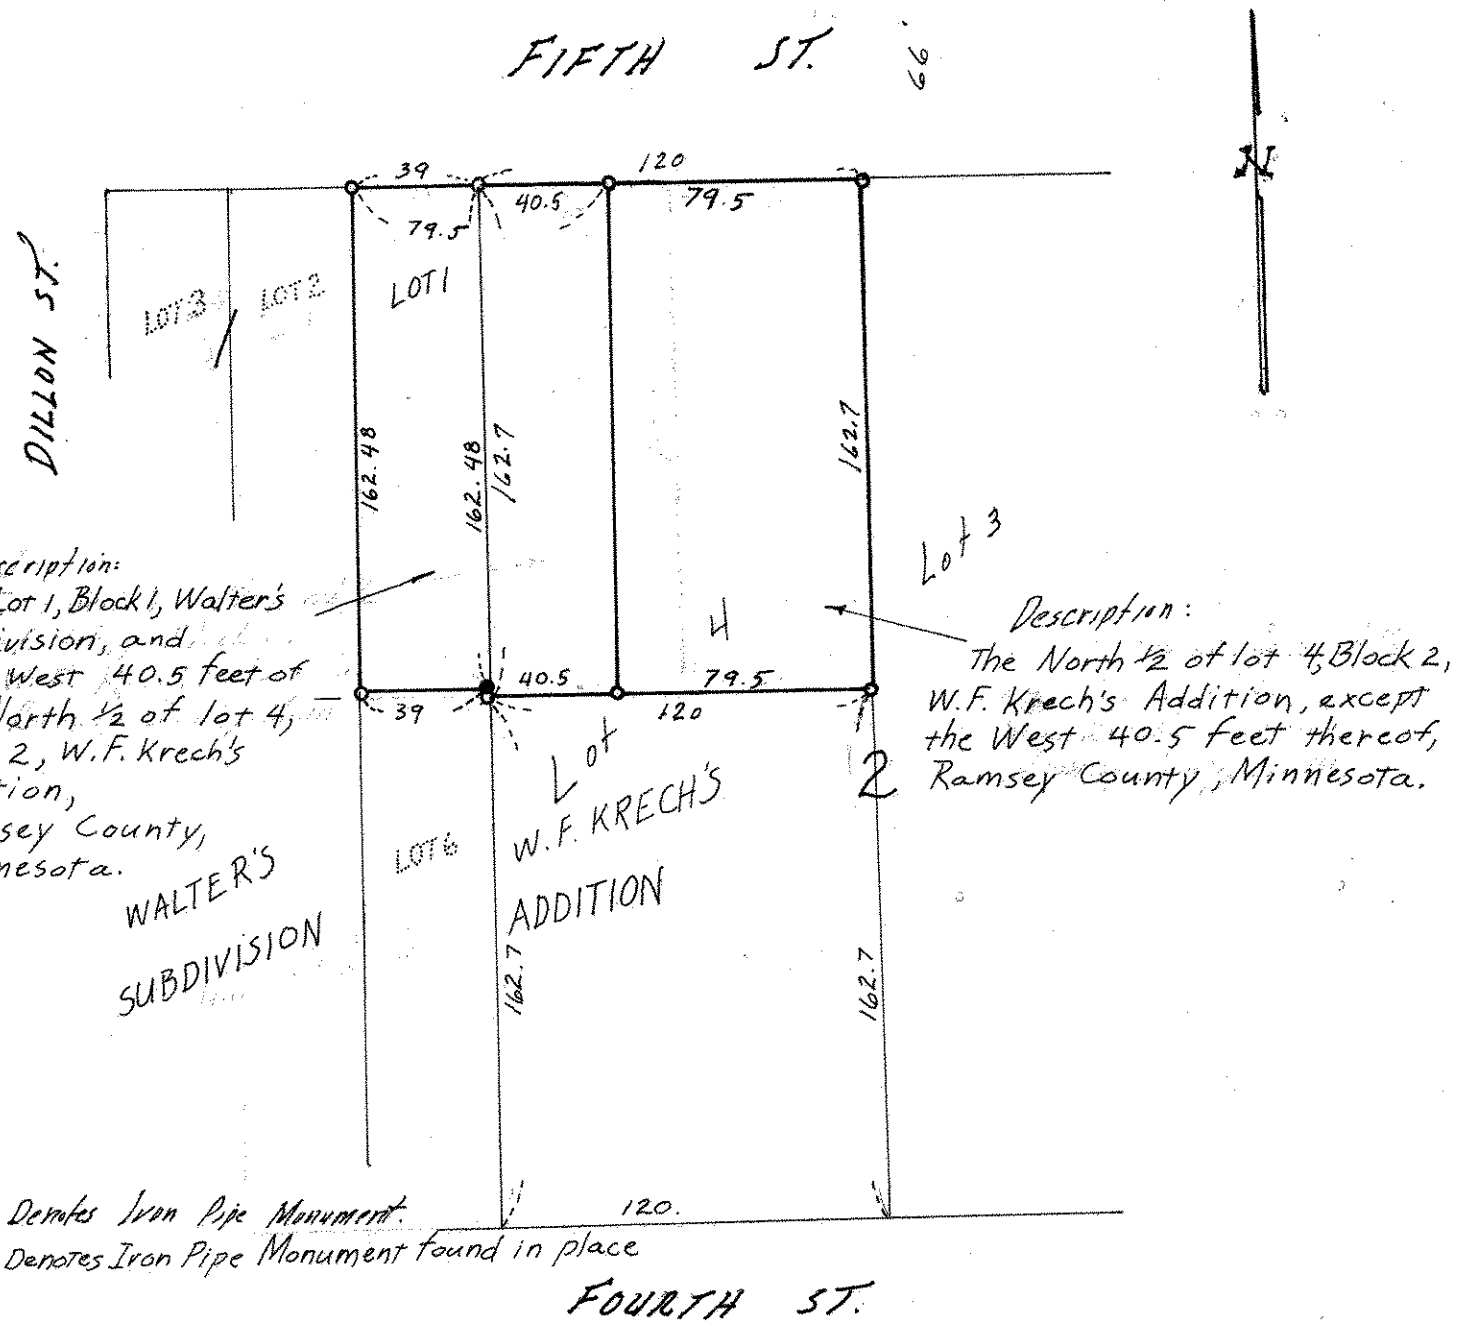 FIFTH ST.
66
N
39
120
40.5
79.5
79.5
DILLON ST.
LOT 3
LOT 2
LOT 1
162.48
162.48
162.7
162.7
Lot 3
cription:
Lot 1, Block 1, Walter's
ivision, and
West 40.5 feet of
North ½ of lot 4,
2, W.F. Krech's
tion,
sey County,
nesota.
Description:
The North ½ of lot 4, Block 2,
W.F. Krech's Addition, except
the West 40.5 feet thereof,
Ramsey County, Minnesota.
4
40.5
79.5
39
120
2
Lot
W.F. KRECH'S
ADDITION
LOT 6
WALTER'S
SUBDIVISION
162.7
162.7
120.
Denotes Iron Pipe Monument.
Denotes Iron Pipe Monument found in place
FOURTH ST.